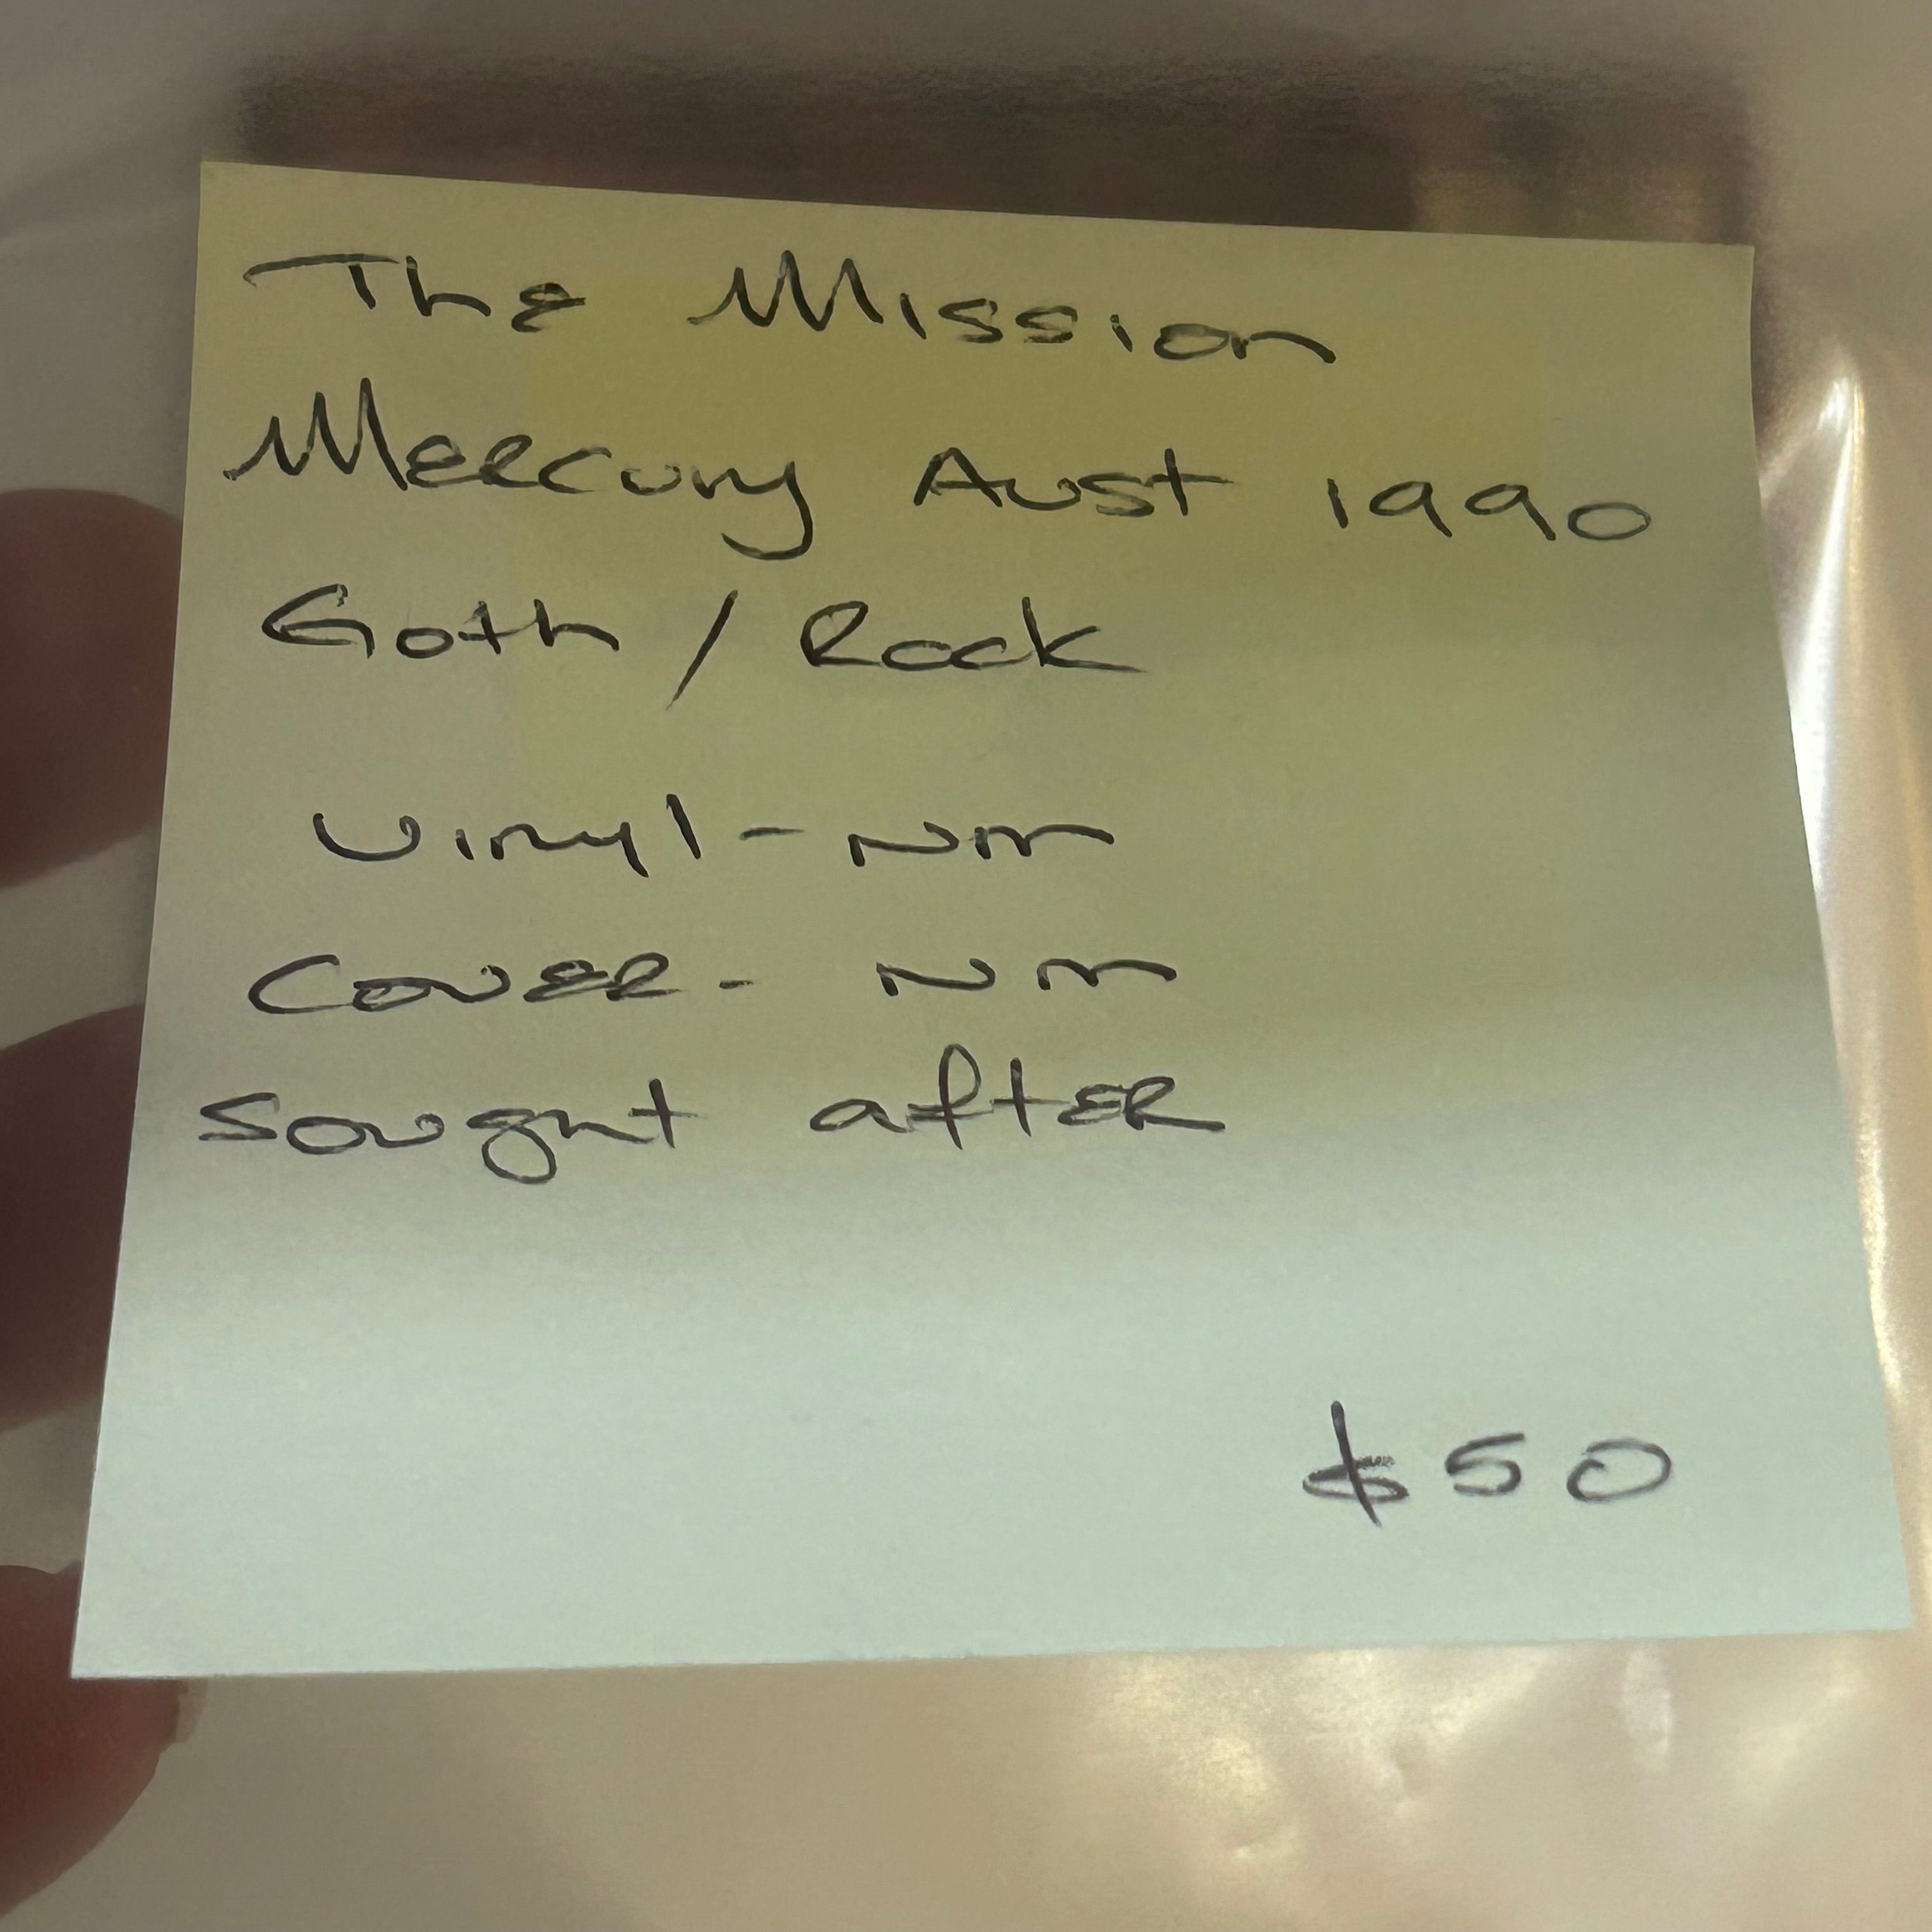 The Mission
Mercury Aust 1990
Goth / Rock
Vinyl - NM
Cover - NM
Sought after
$50